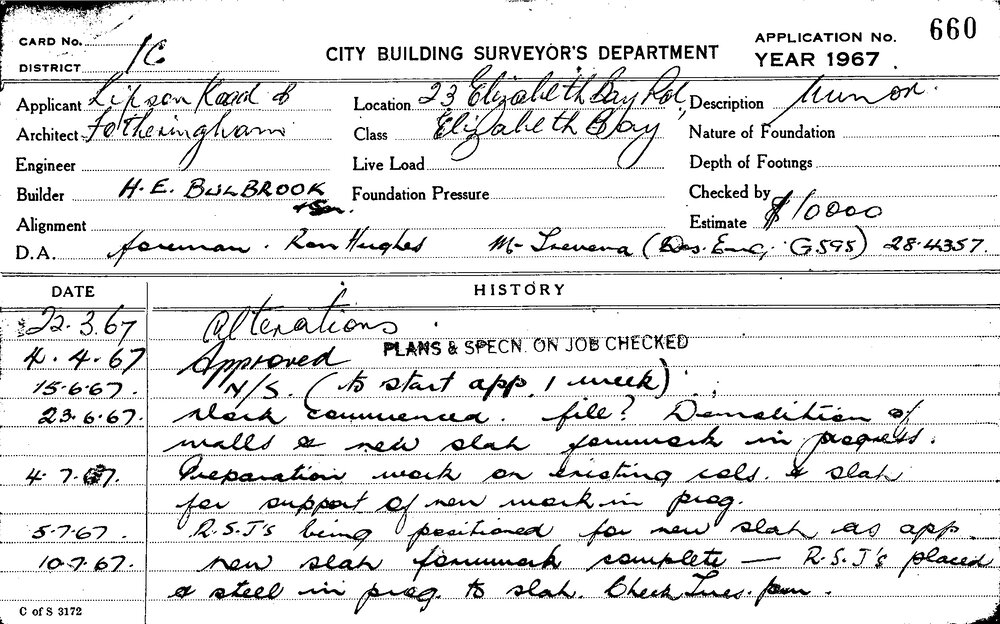 CARD No. 1C
DISTRICT
CITY BUILDING SURVEYOR'S DEPARTMENT
APPLICATION No. 660
YEAR 1967
Applicant Lipson Kaad &
Location 23 Elizabeth Bay Rd,
Description
Architect Fotheringham
Class Elizabeth Bay
Nature of Foundation
Engineer
Live Load
Depth of Footings
Builder H. E. BULBROOK
& Son.
Foundation Pressure
Checked by
Alignment
Estimate $10000
D.A. foreman. Ron Hughes Mr Trevena (Des. Eng. G595) 28.4357.
DATE HISTORY
22.3.67 Alterations.
4.4.67 Approved PLANS & SPECN. ON JOB CHECKED
15.6.67. N/S. (to start app. 1 week)
23.6.67. Work commenced. file? Demolition of
walls & new slab formwork in progress.
4.7.67. Preparation work on existing cols. & slab
for support of new work in prog.
5.7.67 R.S.J's being positioned for new slab as app.
10.7.67. new slab formwork complete — R.S.J's placed
& steel in prog. to slab. Check Tues. pm.
C of S 3172